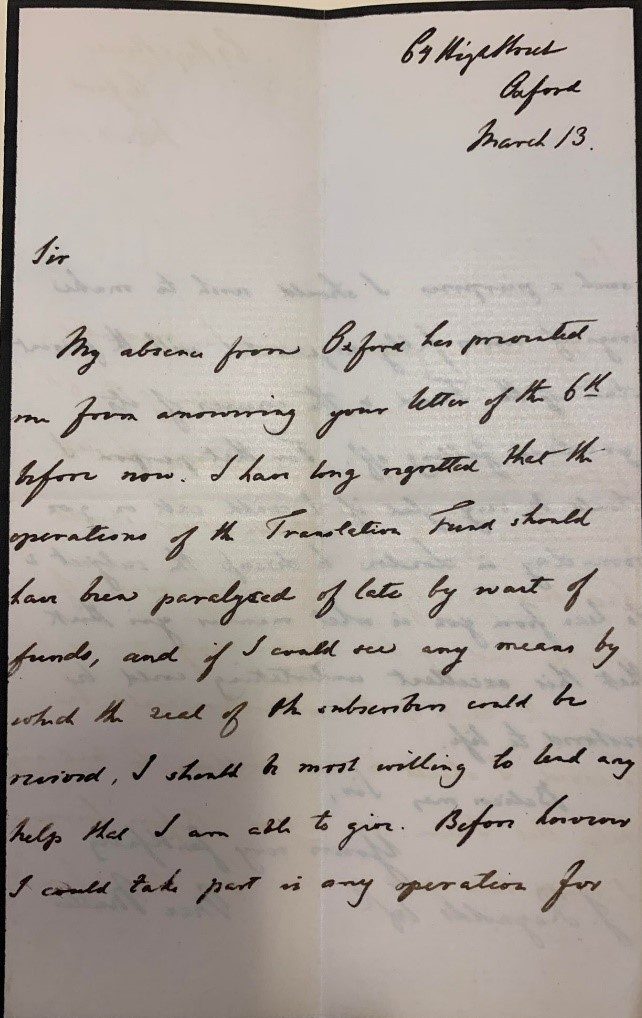 64 High Street
Oxford
March 13.
Sir
My absence from Oxford has prevented
me from answering your letter of the 6th
before now. I have long regretted that the
operations of the Translation Fund should
have been paralyzed of late by want of
funds, and if I could see any means by
which the zeal of the subscribers could be
revived, I should be most willing to lend any
help that I am able to give. Before however
I could take part in any operation for